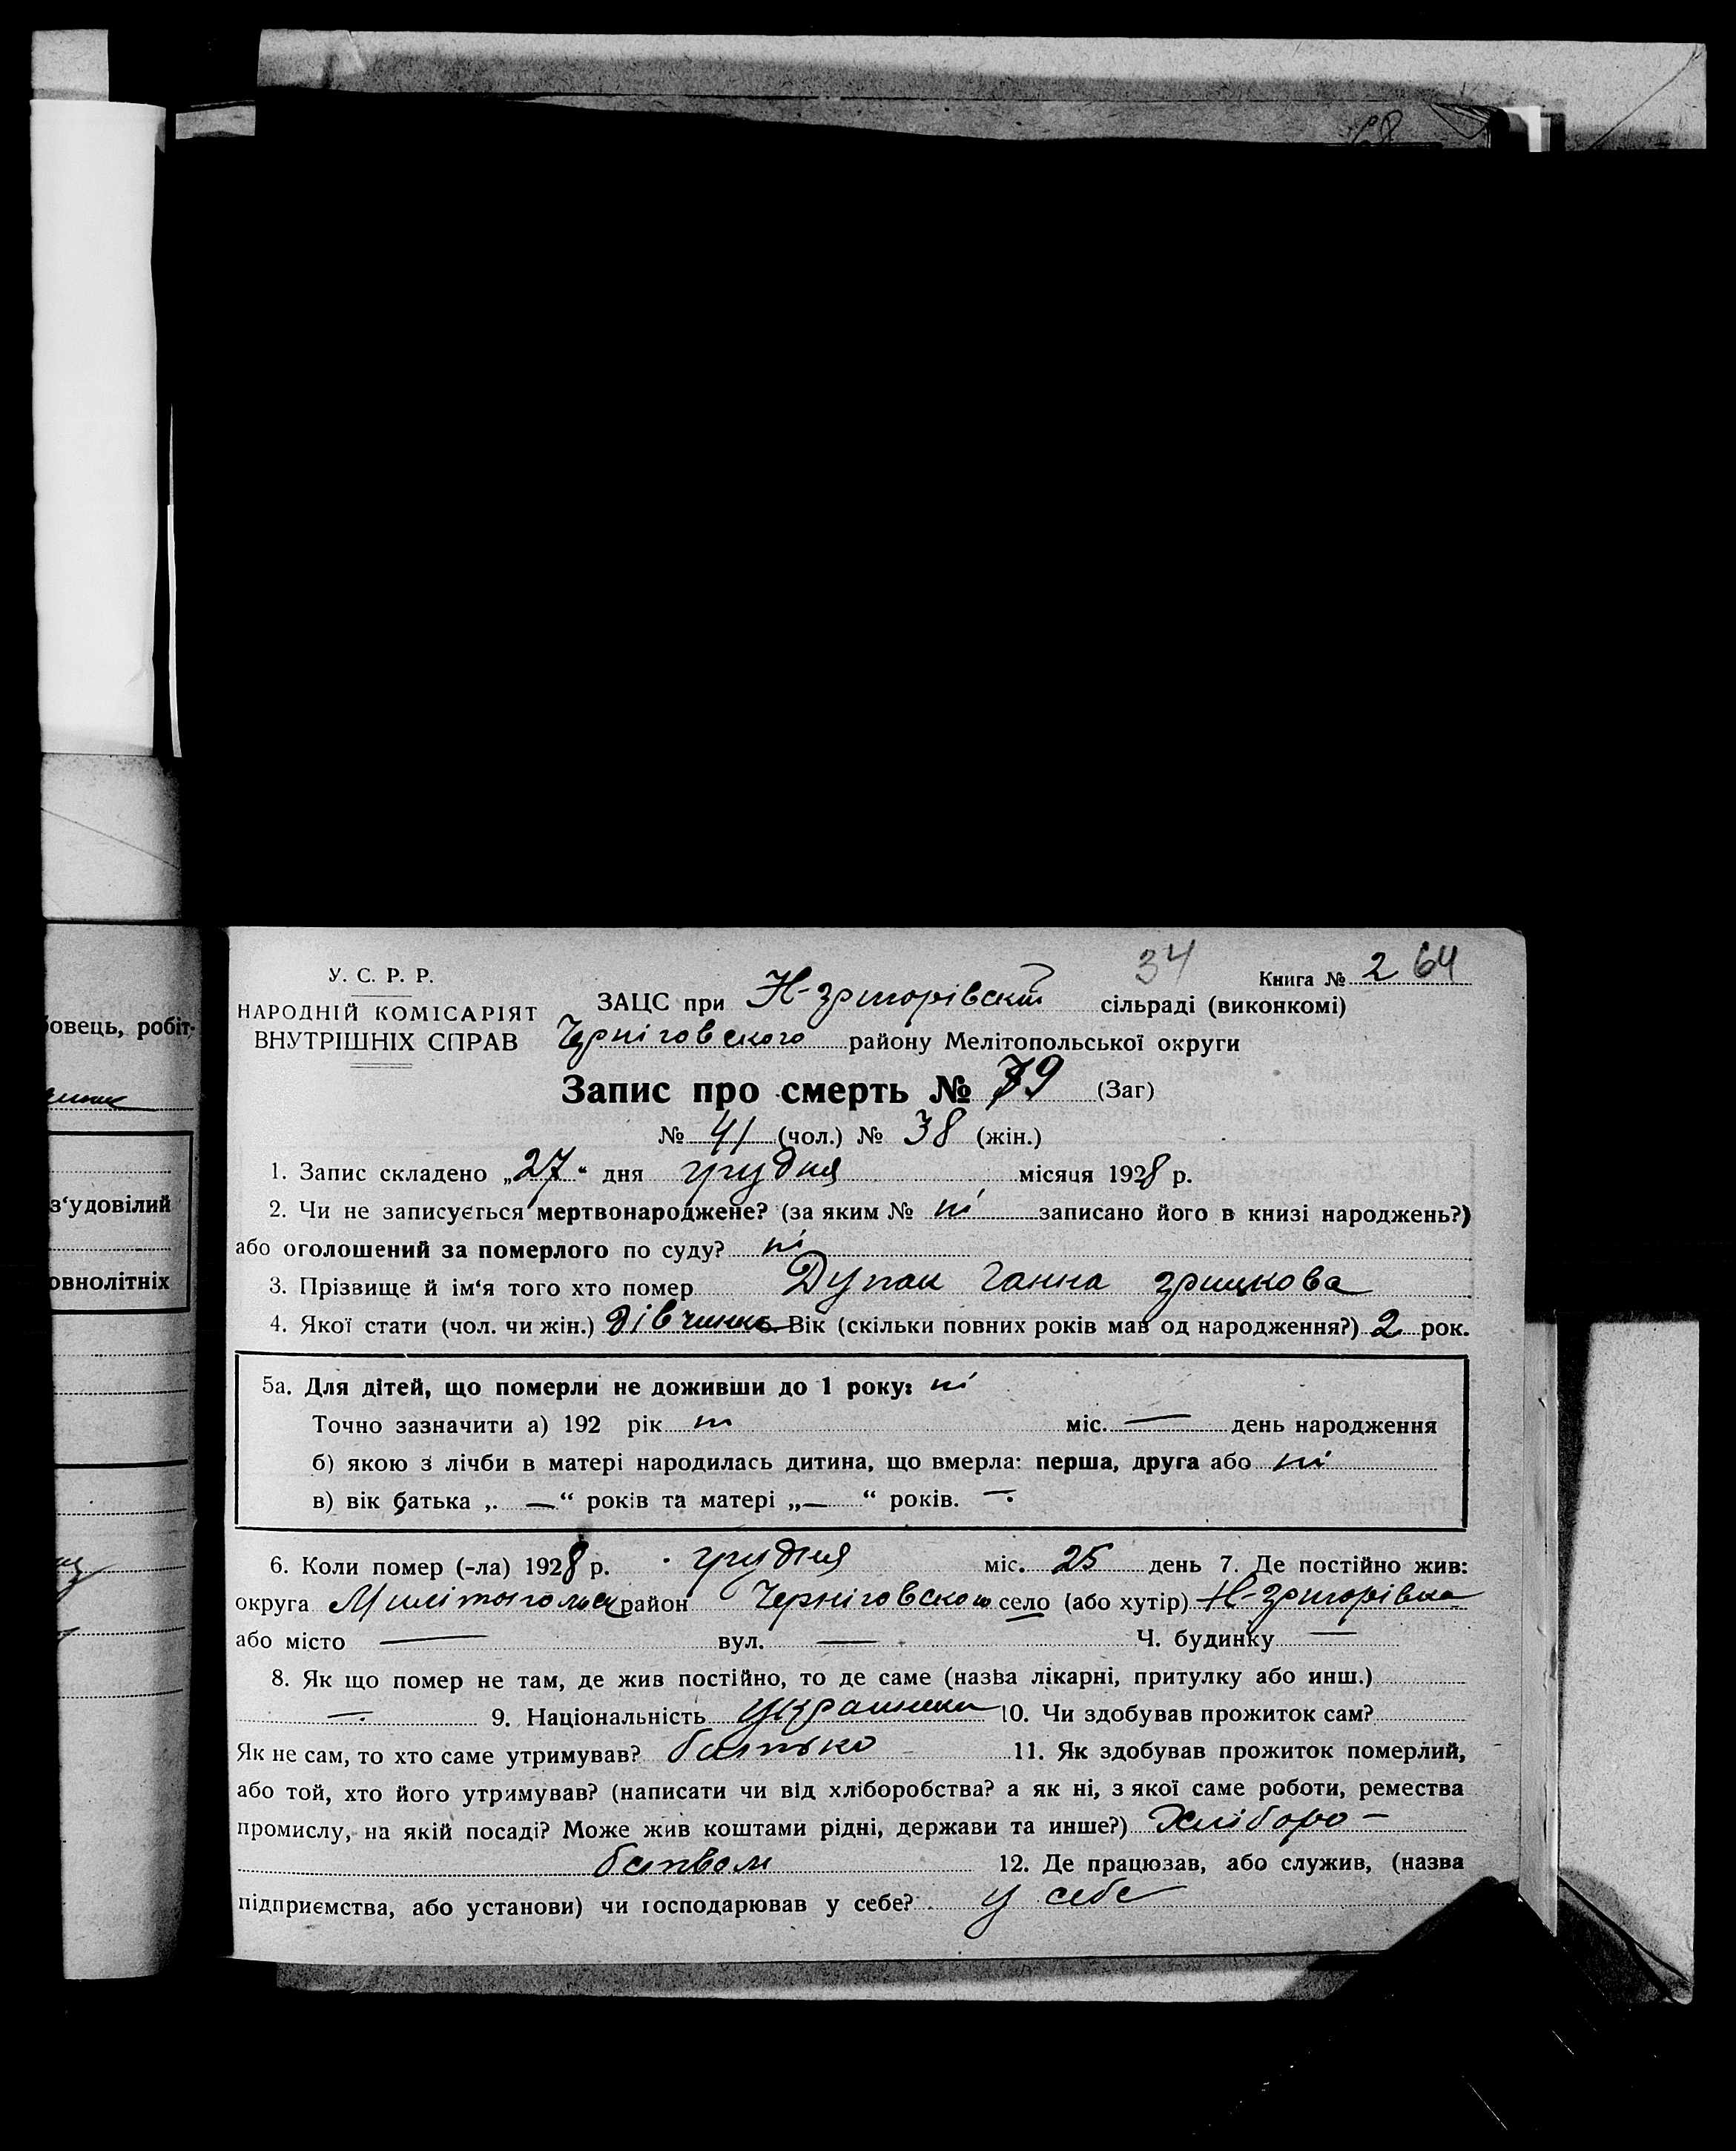 68
овець, робіт-
з‘удовілий
овнолітніх
34
У. С. Р. Р.
Книга № 2 64
НАРОДНІЙ КОМІСАРІЯТ
ВНУТРІШНІХ СПРАВ
ЗАЦС при Н-григорівскій сільраді (виконкомі)
Черніговского району Мелітопольської округи
Запис про смерть № 79 (Заг)
№ 41 (чол.) № 38 (жін.)
1. Запис складено „27“ дня грудня місяця 1928 р.
2. Чи не записується мертвонароджене? (за яким № ні записано його в книзі народжень?)
або оголошений за померлого по суду? ні
3. Прізвище й ім‘я того хто помер Дупак Ганна грицкова
4. Якої стати (чол. чи жін.) дівчина Вік (скільки повних років мав од народження?) 2 рок.
5а. Для дітей, що померли не доживши до 1 року: ні
Точно зазначити а) 192 рік ні міс. — день народження
б) якою з лічби в матері народилась дитина, що вмерла: перша, друга або ні
в) вік батька „ — “ років та матері „ — “ років. —.
6. Коли помер (-ла) 1928 р. грудня міс. 25 день 7. Де постійно жив:
округа район Черніговського село (або хутір) Н-григорівка
або місто — вул. — Ч. будинку —
8. Як що помер не там, де жив постійно, то де саме (назва лікарні, притулку або инш.)
—. 9. Національність украинка 10. Чи здобував прожиток сам?
Як не сам, то хто саме утримував? батько 11. Як здобував прожиток померлий,
або той, хто його утримував? (написати чи від хліборобства? а як ні, з якої саме роботи, ремества
промислу, на якій посаді? Може жив коштами рідні, держави та инше?) Хліборо-
бством 12. Де працював, або служив, (назва
підприємства, або установи) чи господарював у себе? у себе